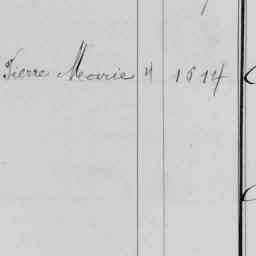 Pierre Marie 4 1614